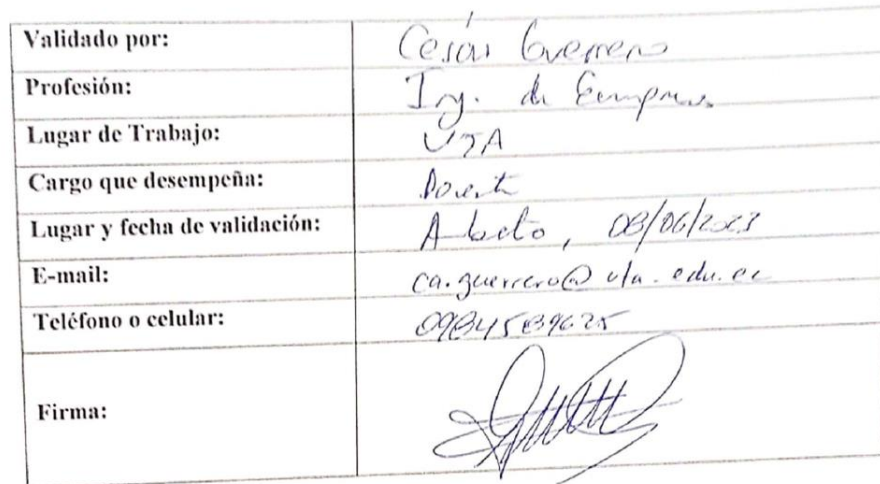 Validado por: César Guerrero
Profesión: Ing. de Empresas
Lugar de Trabajo: UTA
Cargo que desempeña: Docente
Lugar y fecha de validación: Ambato, 08/06/2023
E-mail: ca.guerrero@uta.edu.ec
Teléfono o celular:
Firma: